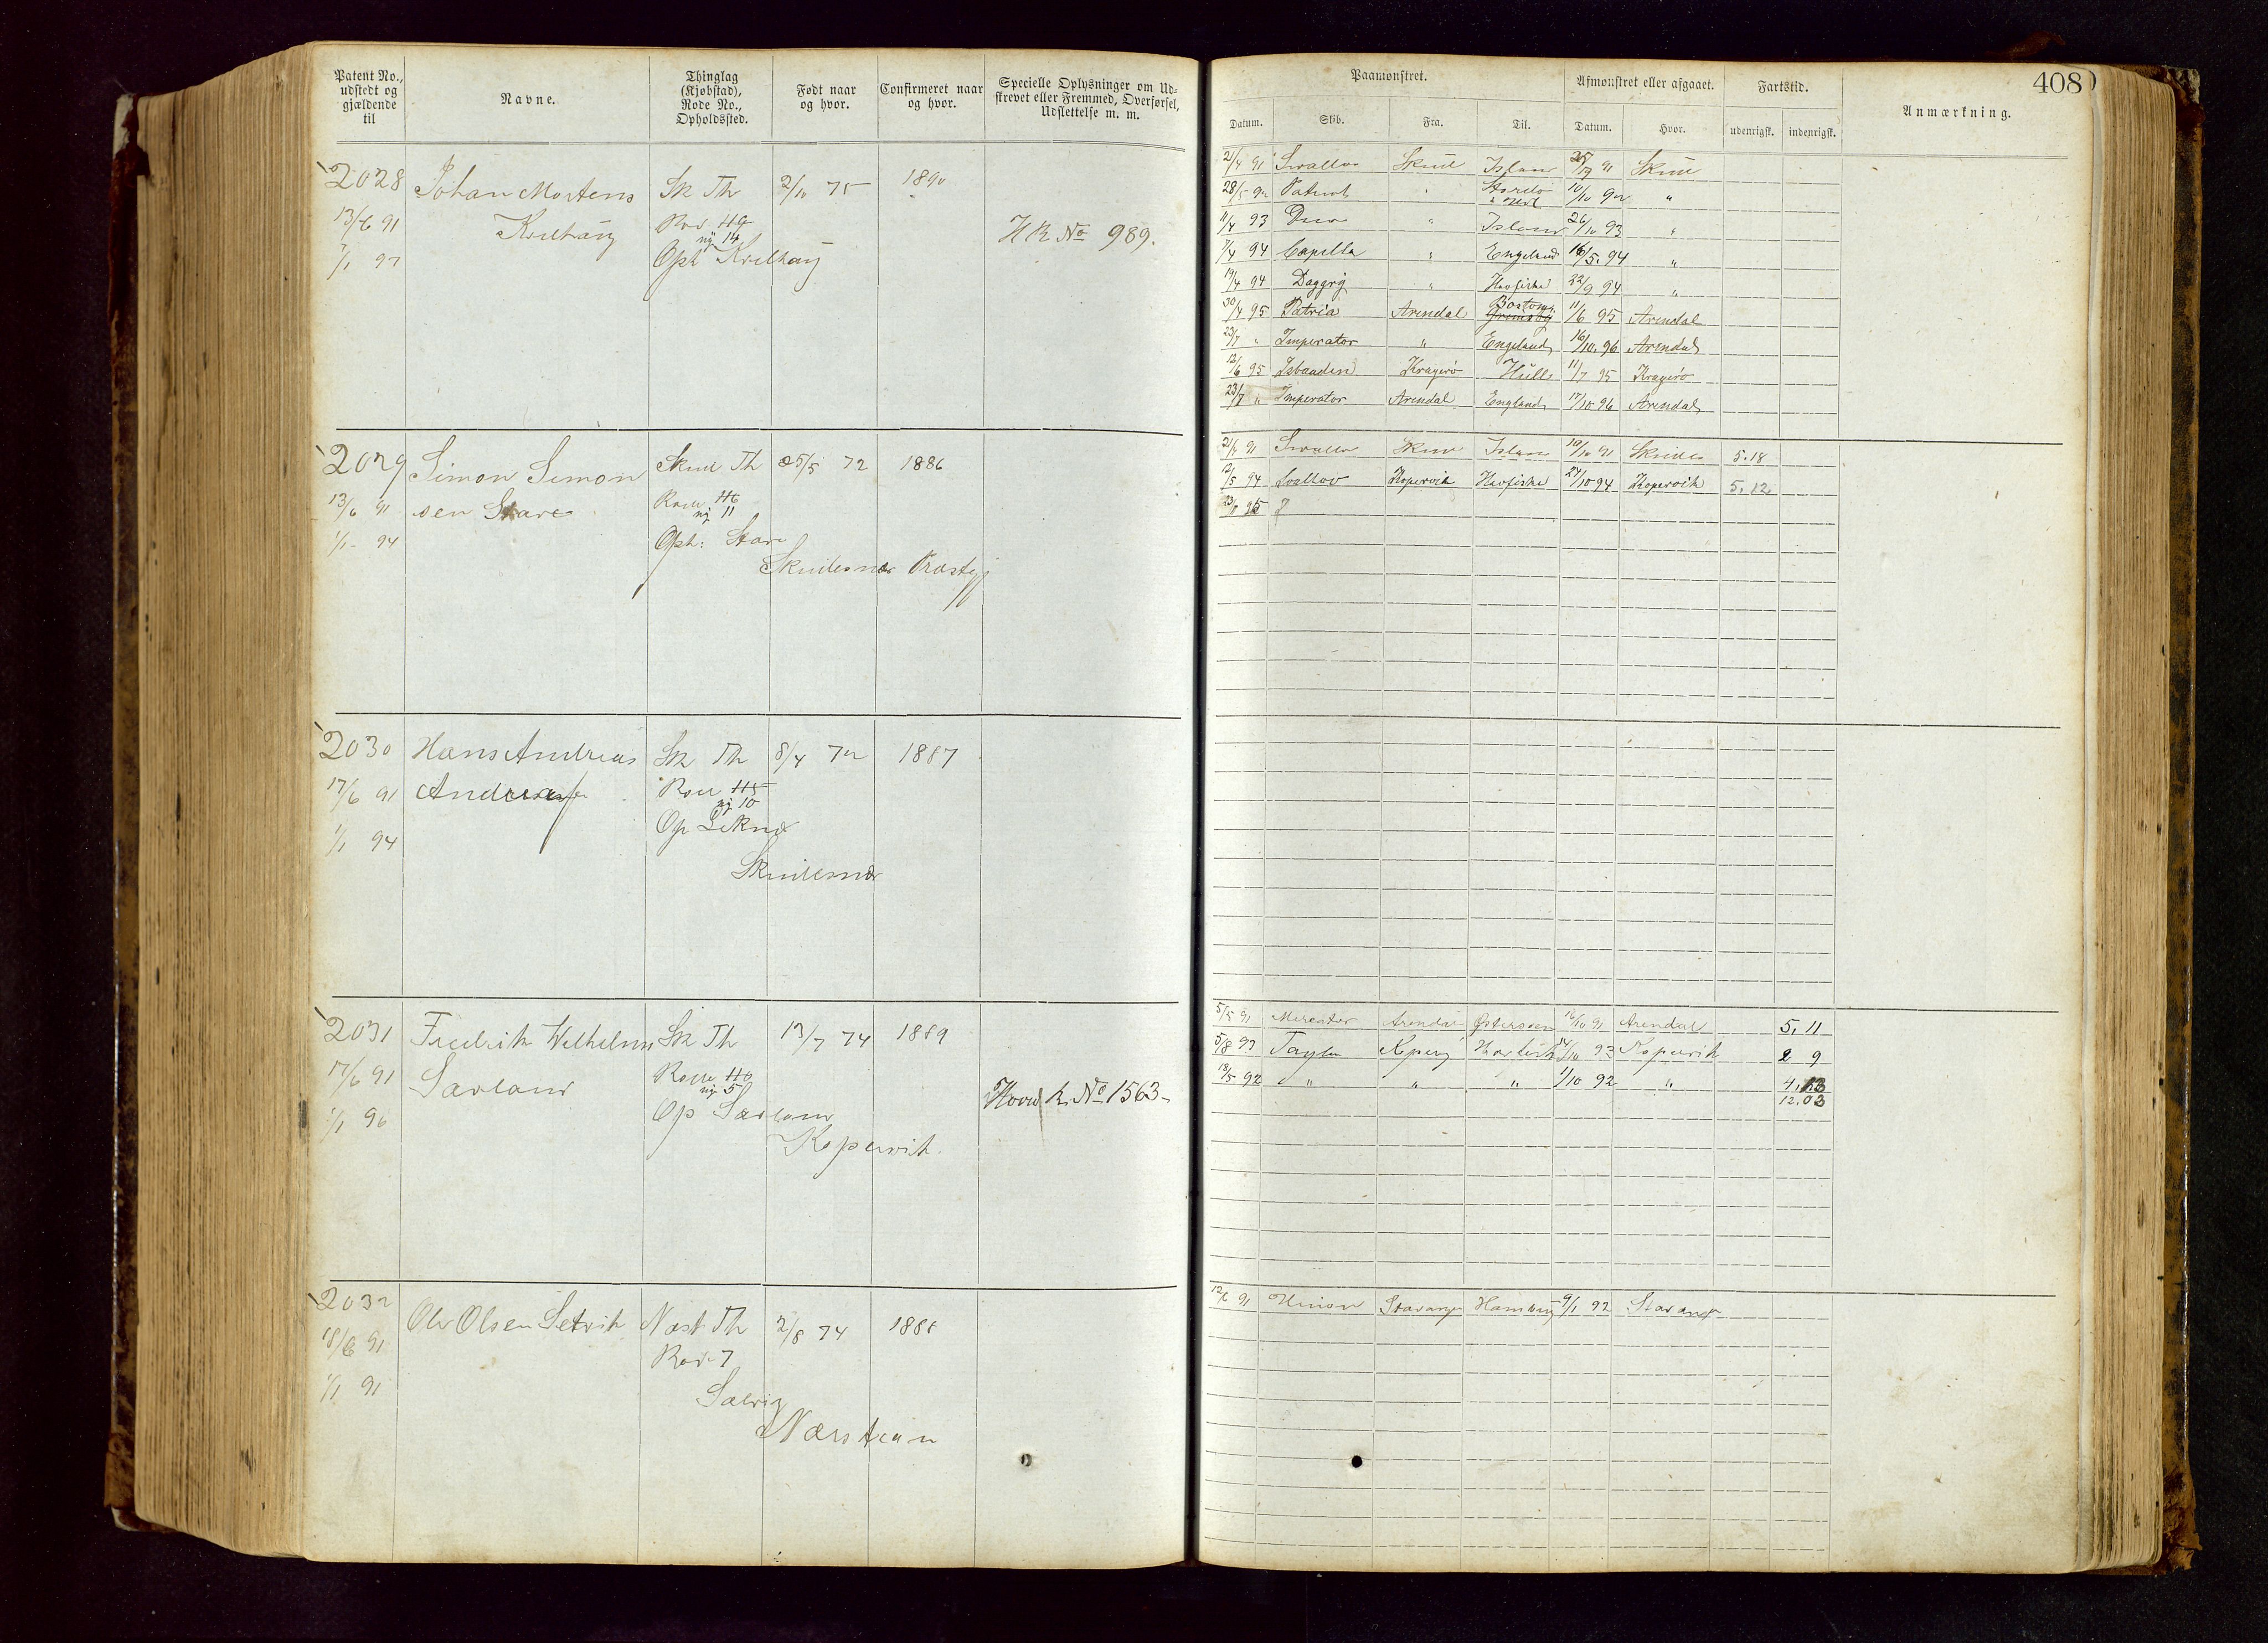 Patent No., udstedt og gjældende til
Navne.
Thinglag (Kjøbstad), Rode No., Opholdssted.
Født naar og hvor.
Confirmeret naar og hvor.
Specielle Oplysninger om Udskrevet eller Fremmed, Overførsel, Udslettelse m. m.
2028 Johan Mortens Sk Th 2/10 75 1890
13/6 91 Kvilhaug Rod 49 ny 14 H R No 989.
1/1 97 Oph Kvilhaug
2029 Simon Simon Skud Th 25/5 72 1886
13/6 91 sen Stare Rode 46 ny 11
1/1 94 Oph: Stare
Skudesnæs Præstegj
2030 Hans Andreas Sk Th 8/4 72 1887
17/6 91 Andreasen Rode 45 ny 10
1/1 94 Op
Skudesnæs
2031 Fredrik Wilhelm Sk Th 13/7 74 1889
17/6 91 Sævland Rode 40 ny 5 Hoved R. No 1563
1/1 96 Op Sævland
Kopervik
2032 Ole Olsen Setvik Næst Th 2/8 74 1888
18/6 91 Rode 7
1/1 91 Sælvig
Nærstran
408
Paamønstret.
Afmønstret eller afgaaet.
Fartstid.
Anmærkning.
Datum. Skib. Fra. Til. Datum. Hvor. udenrigsk. indenrigsk.
21/4 91 Svallov Skud Islan 91 Skud
28/5 92 Patent " 10/10 92 "
11/4 93 Duo " Island 26/10 93 "
7/4 94 Capella " Engeland 16/5. 94 "
19/4 94 Daggry " Havfiske 22/9 94 "
30/4 95 Patria Arendal Boston Grimsby 11/6 95 Arendal
23/7 " Imperator " Engeland 16/10. 96 Arendal
12/6 95 Isbaaden Kragerø Hull 11/7 95 Kragerø
23/7 " Imperator Arendal England 17/10 96 Arendal
21/4 91 Svallov Skud Islan 10/10 91 Skudes 5.18
12/5 94 Svallov Kopervik Havfiske 24/10 94 Kopervik 5.12
23/8 95
5/5 91 Mercator Arendal Østersøen 16/10 91 Arendal 5. 11
5/8 93 Kopervig Havfisk 14/10 93 Kopervik 2 9
18/5 92 " " " 1/10 92 " 4.13
12.03
12/6 91 Union Stavanger Hamburg 9/1 92 Stavanger